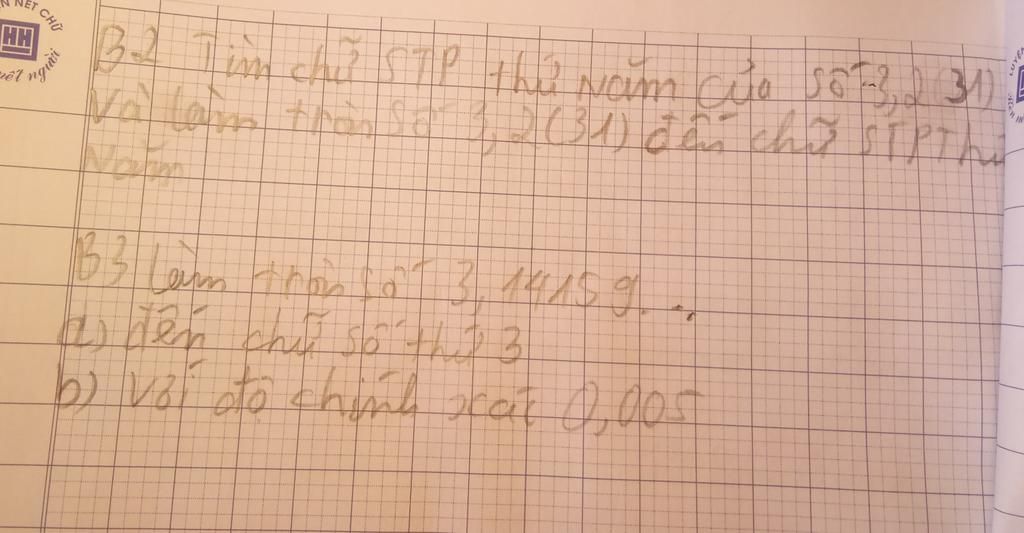 N NET CHỮ
HH
ết người
B2 Tìm chữ STP thứ Năm của số 3,2(31)
Và làm tròn số 3,2(31) đến chữ STP Thứ
Năm
B3 Làm tròn số 3,14159...
a) đến chữ số thứ 3
b) Với độ chính xác 0,005